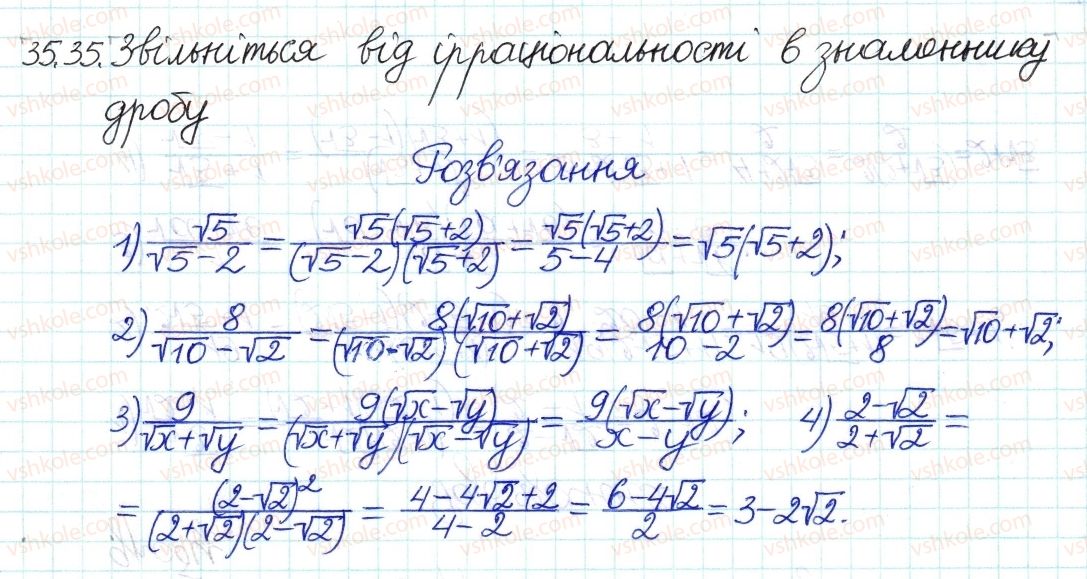 35.35. Звільніться від ірраціональності в знаменнику
дробу
Розв'язання
1) √5/(√5-2) = √5(√5+2)/((√5-2)(√5+2)) = √5(√5+2)/(5-4) = √5(√5+2);
2) 8/(√10-√2) = 8(√10+√2)/((√10-√2)(√10+√2)) = 8(√10+√2)/(10-2) = 8(√10+√2)/8 = √10+√2;
3) 9/(√x+√y) = 9(√x-√y)/((√x+√y)(√x-√y)) = 9(√x-√y)/(x-y); 4) (2-√2)/(2+√2) =
= (2-√2)²/((2+√2)(2-√2)) = (4-4√2+2)/(4-2) = (6-4√2)/2 = 3-2√2.